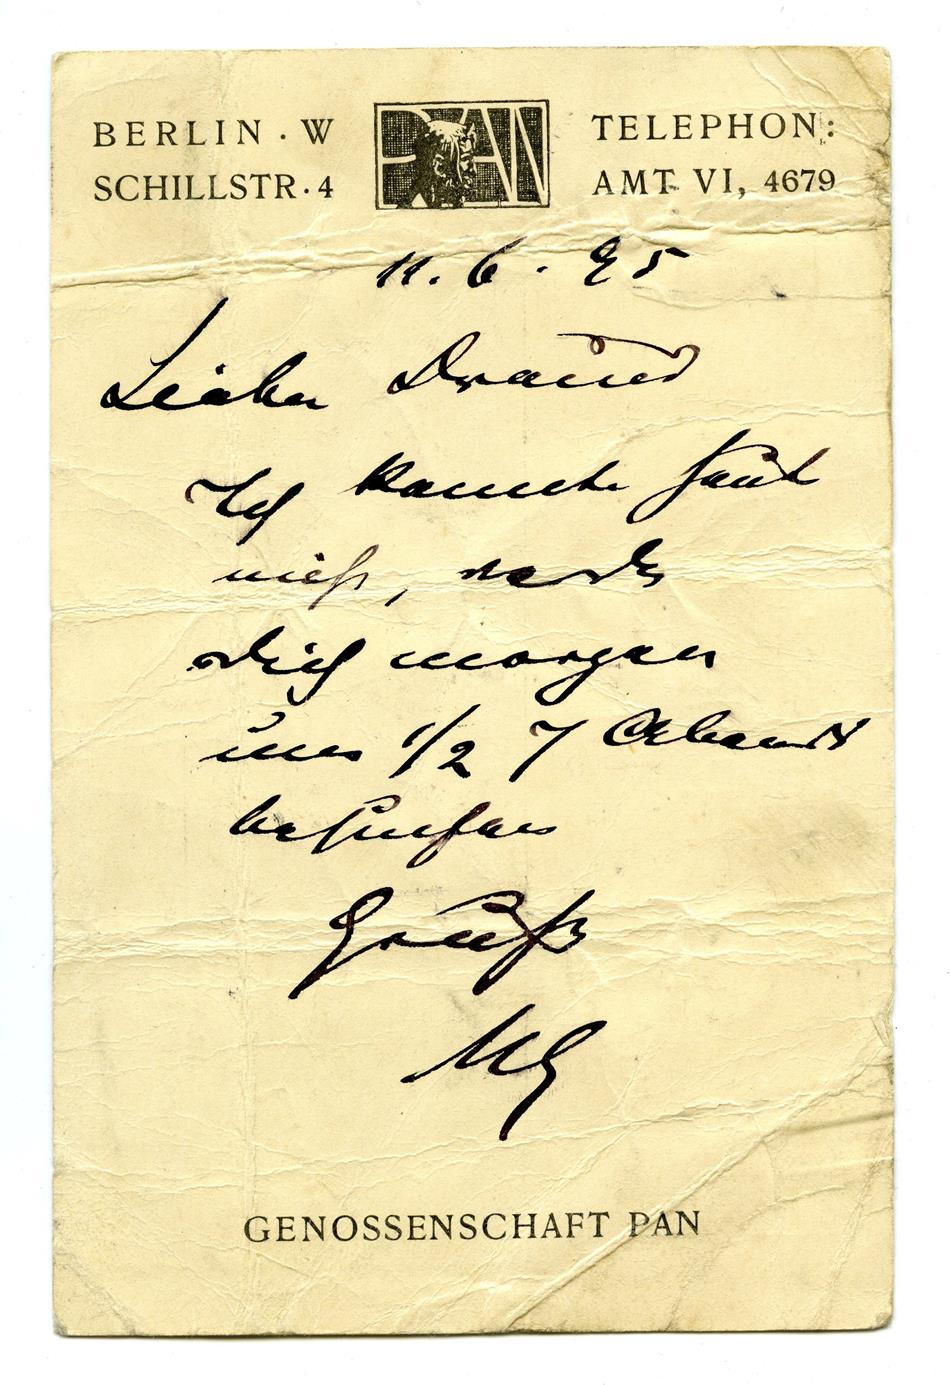 BERLIN · W
SCHILLSTR · 4
PAN
TELEPHON:
AMT VI, 4679
11. 6. 95
Lieber Freund
Ich konnte heut
nicht, werde
Dich morgen
um 1/2 7 Abends
besuchen
Gruß
MG
GENOSSENSCHAFT PAN